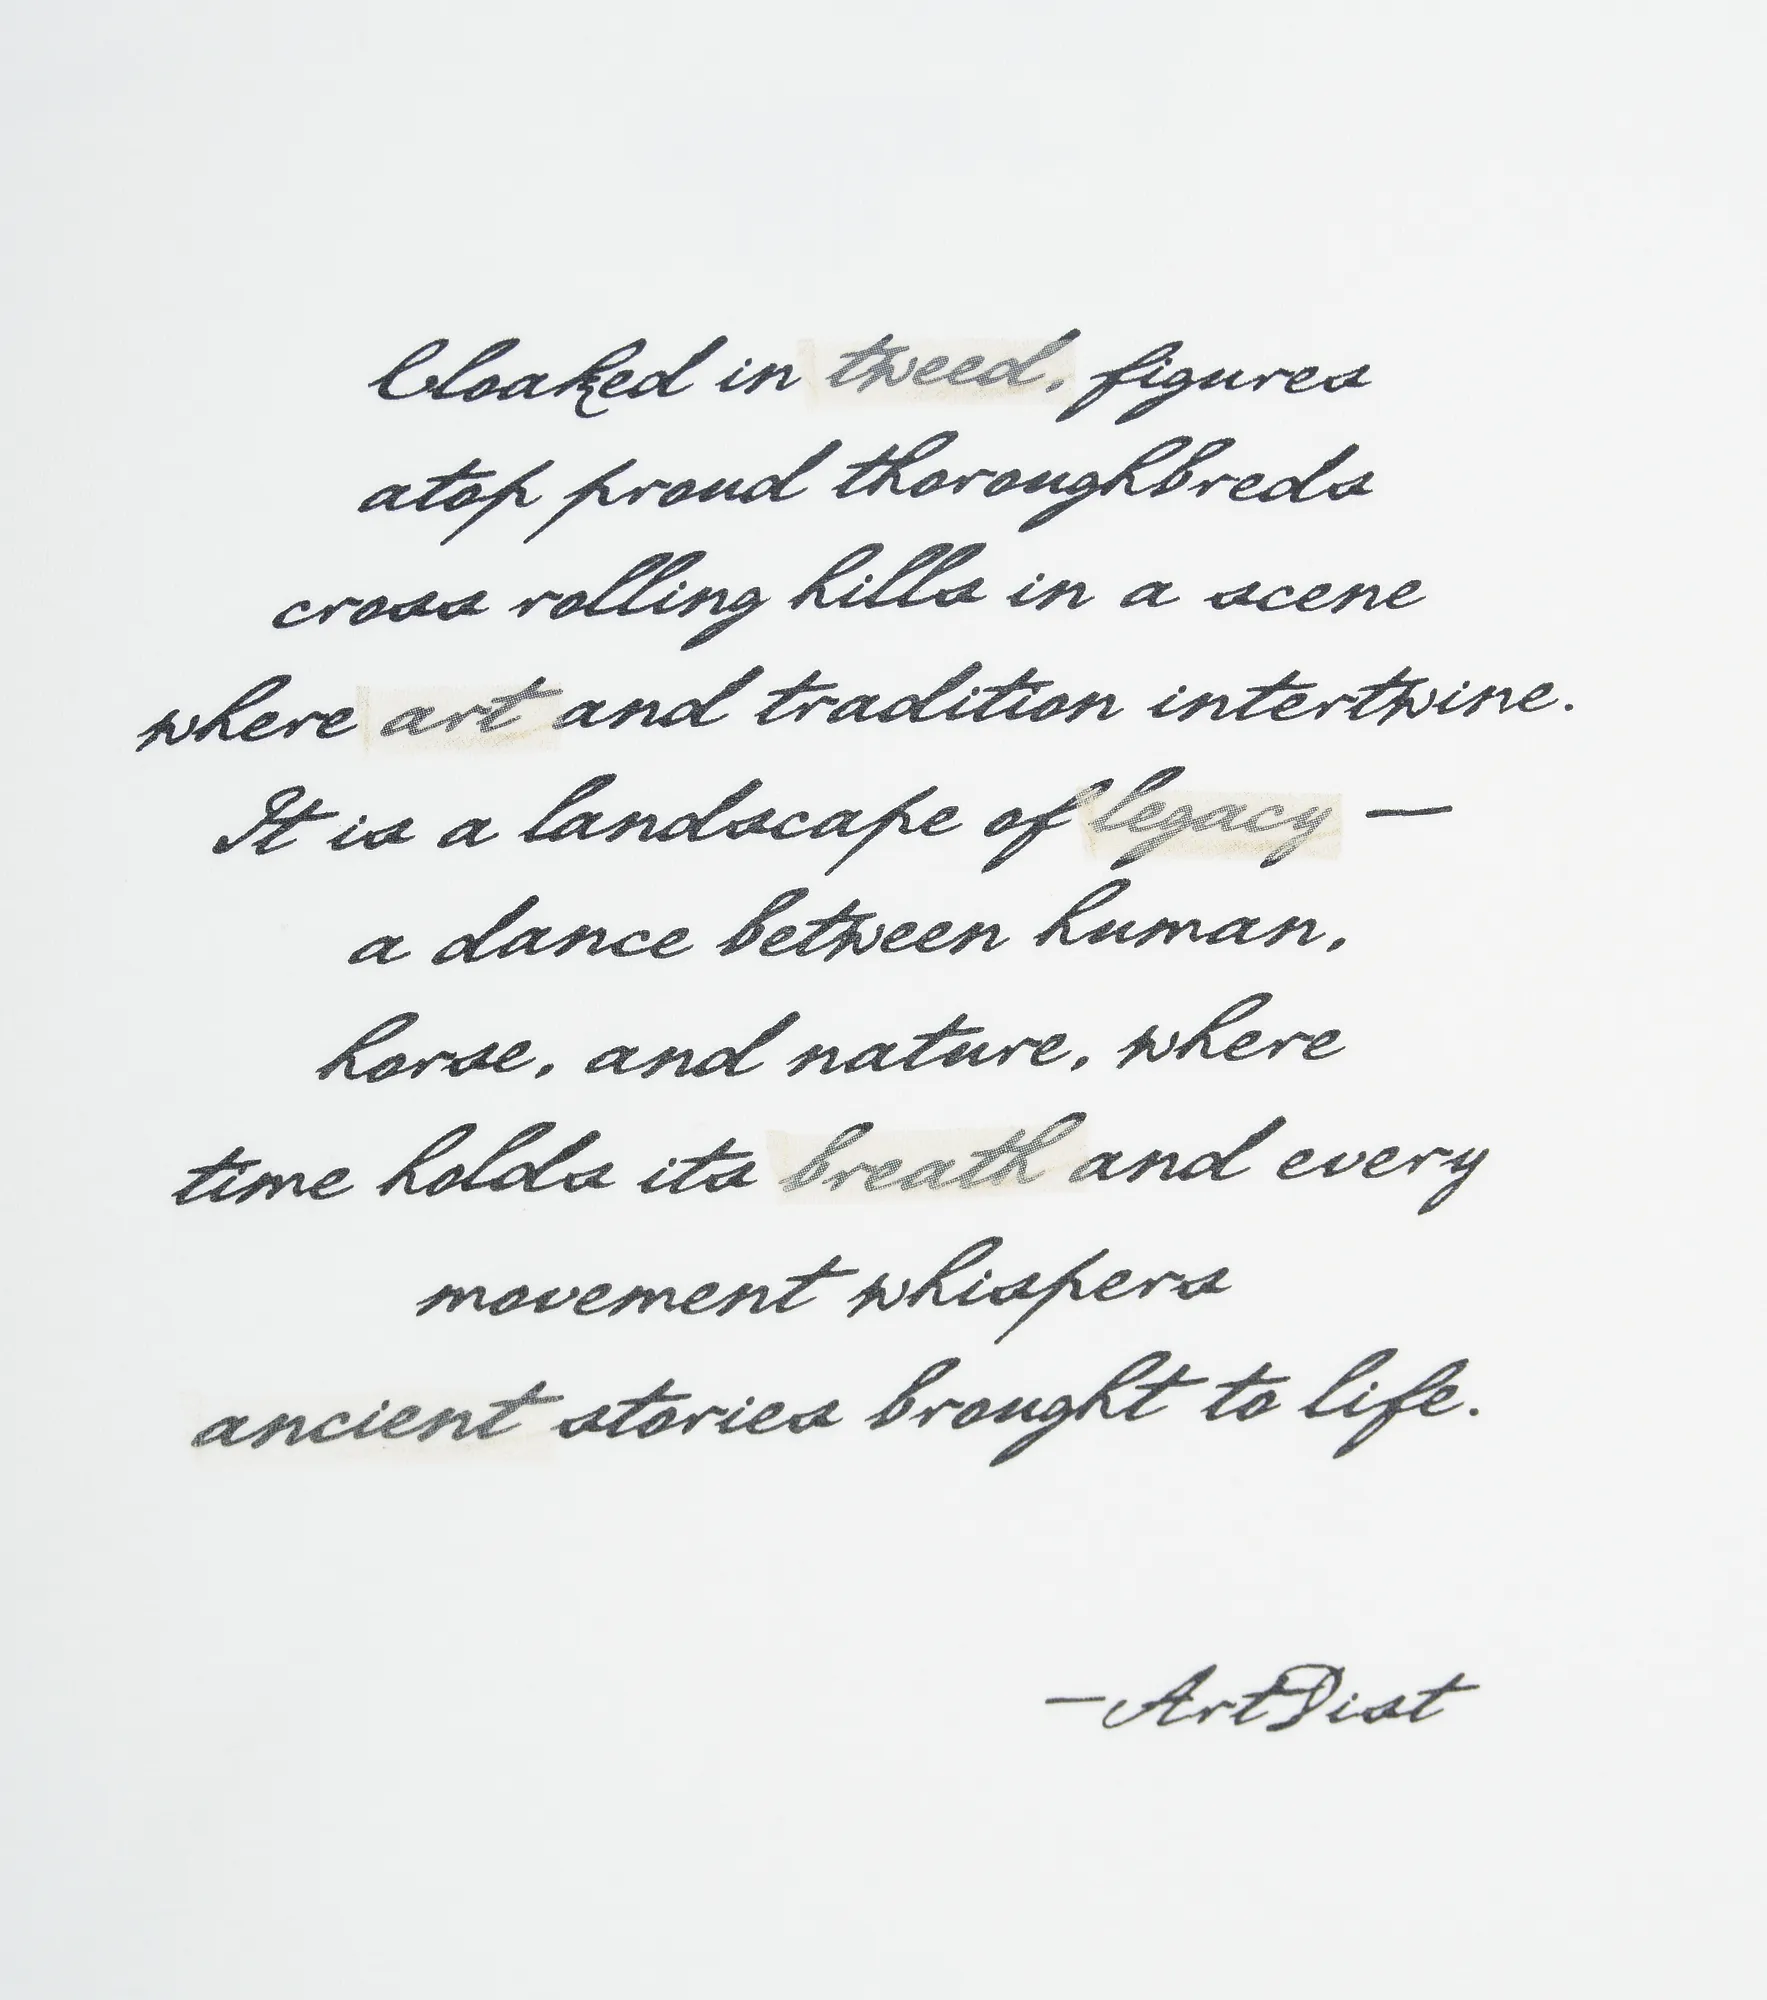 Cloaked in tweed, figures
atop proud thoroughbreds
cross rolling hills in a scene
where art and tradition intertwine.
It is a landscape of legacy —
a dance between human,
horse, and nature, where
time holds its breath and every
movement whispers
ancient stories brought to life.
—ArtDist